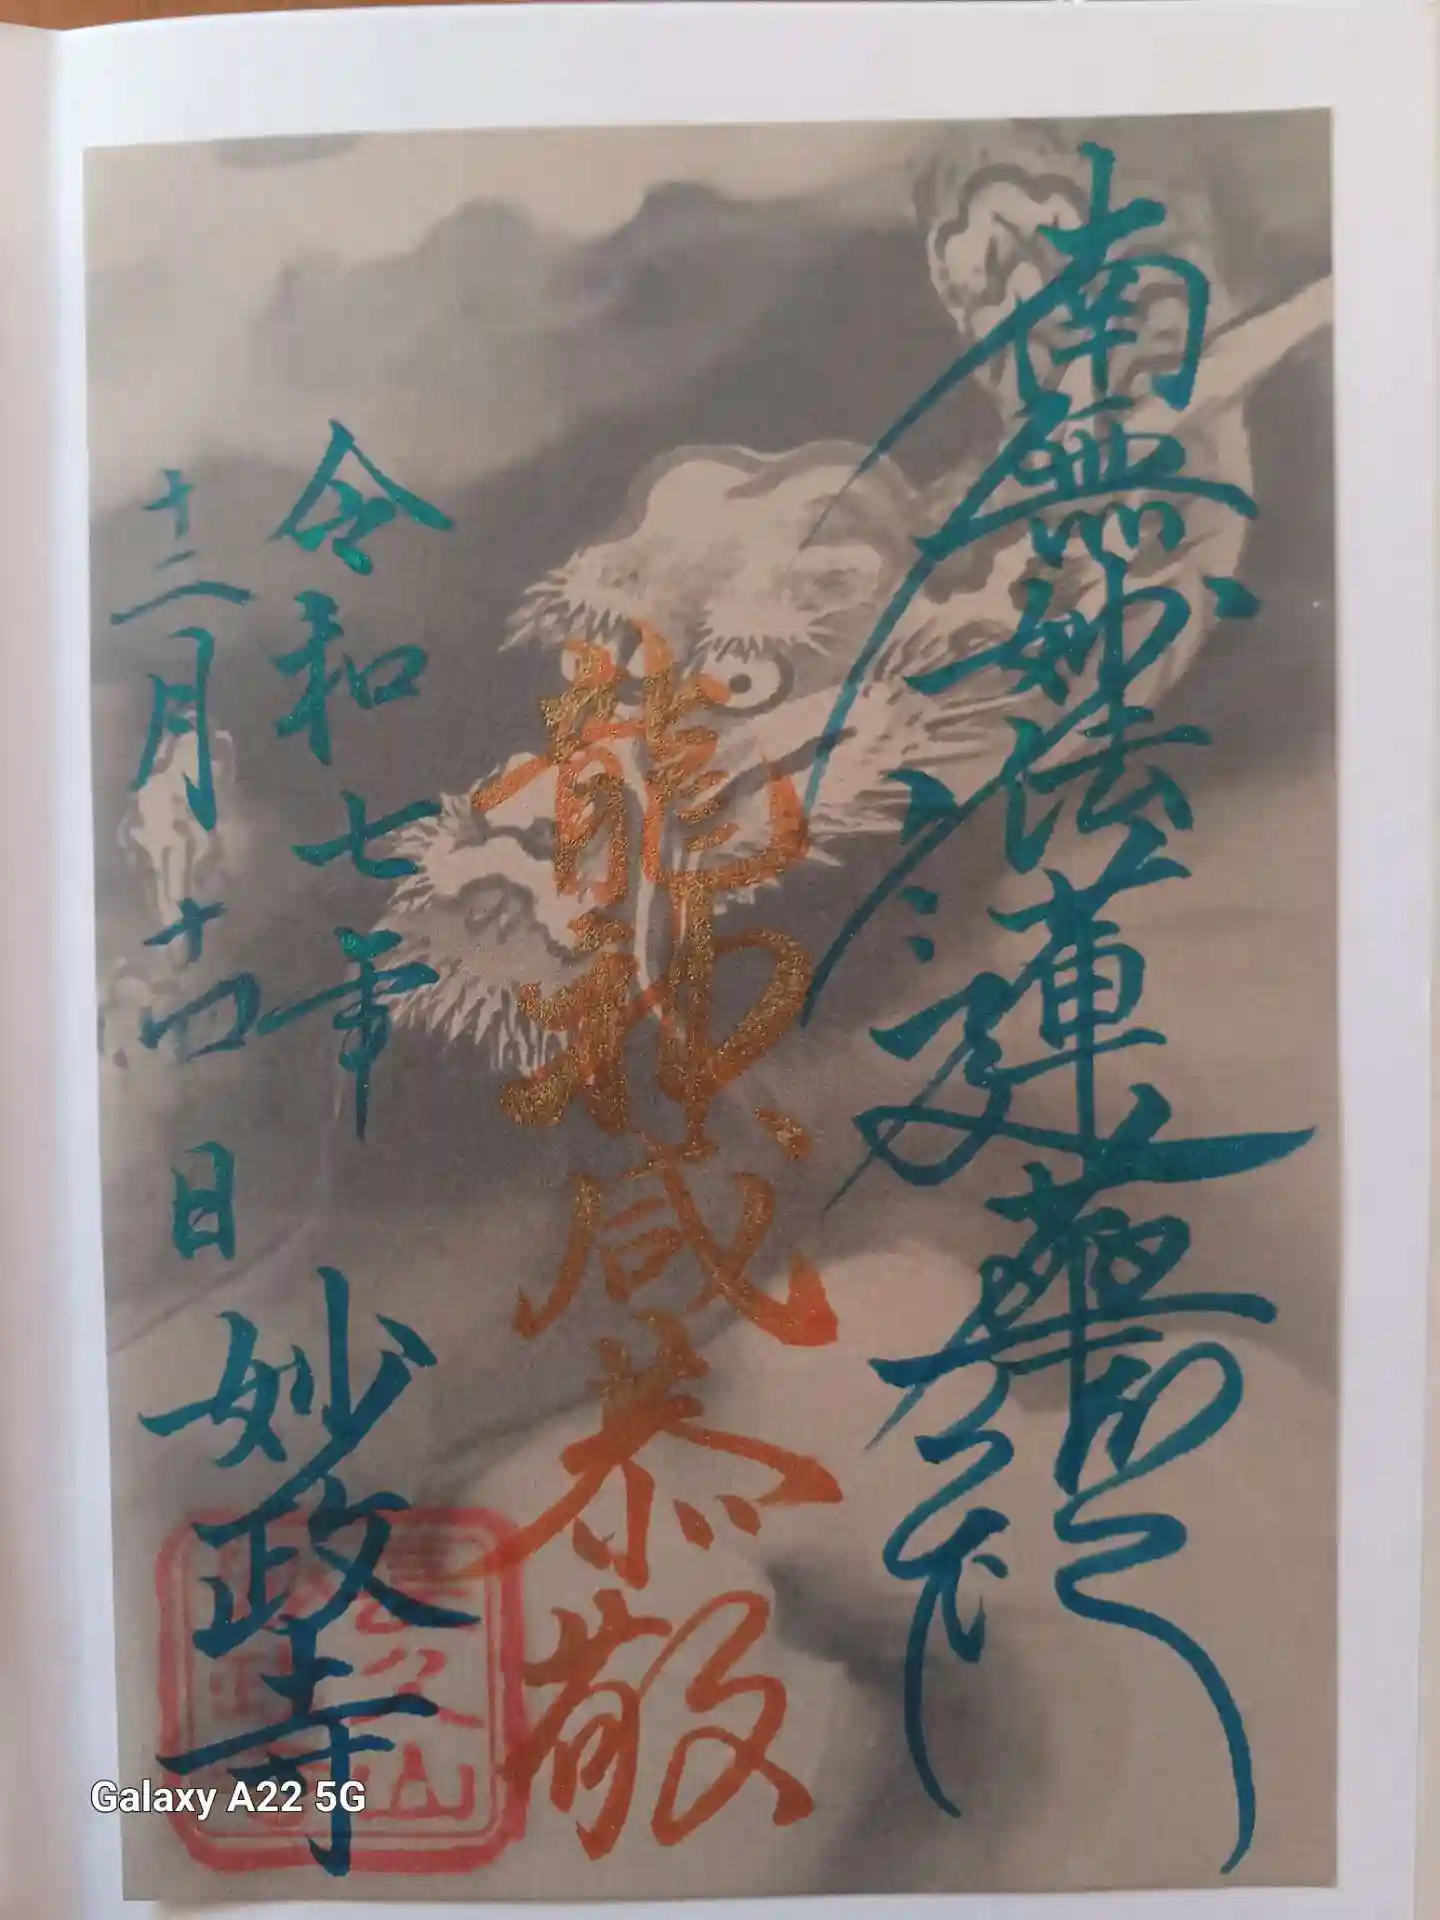 南無妙法蓮華經
龍神咸恭敬
令和七年
十二月十四日
妙政寺
Galaxy A22 5G